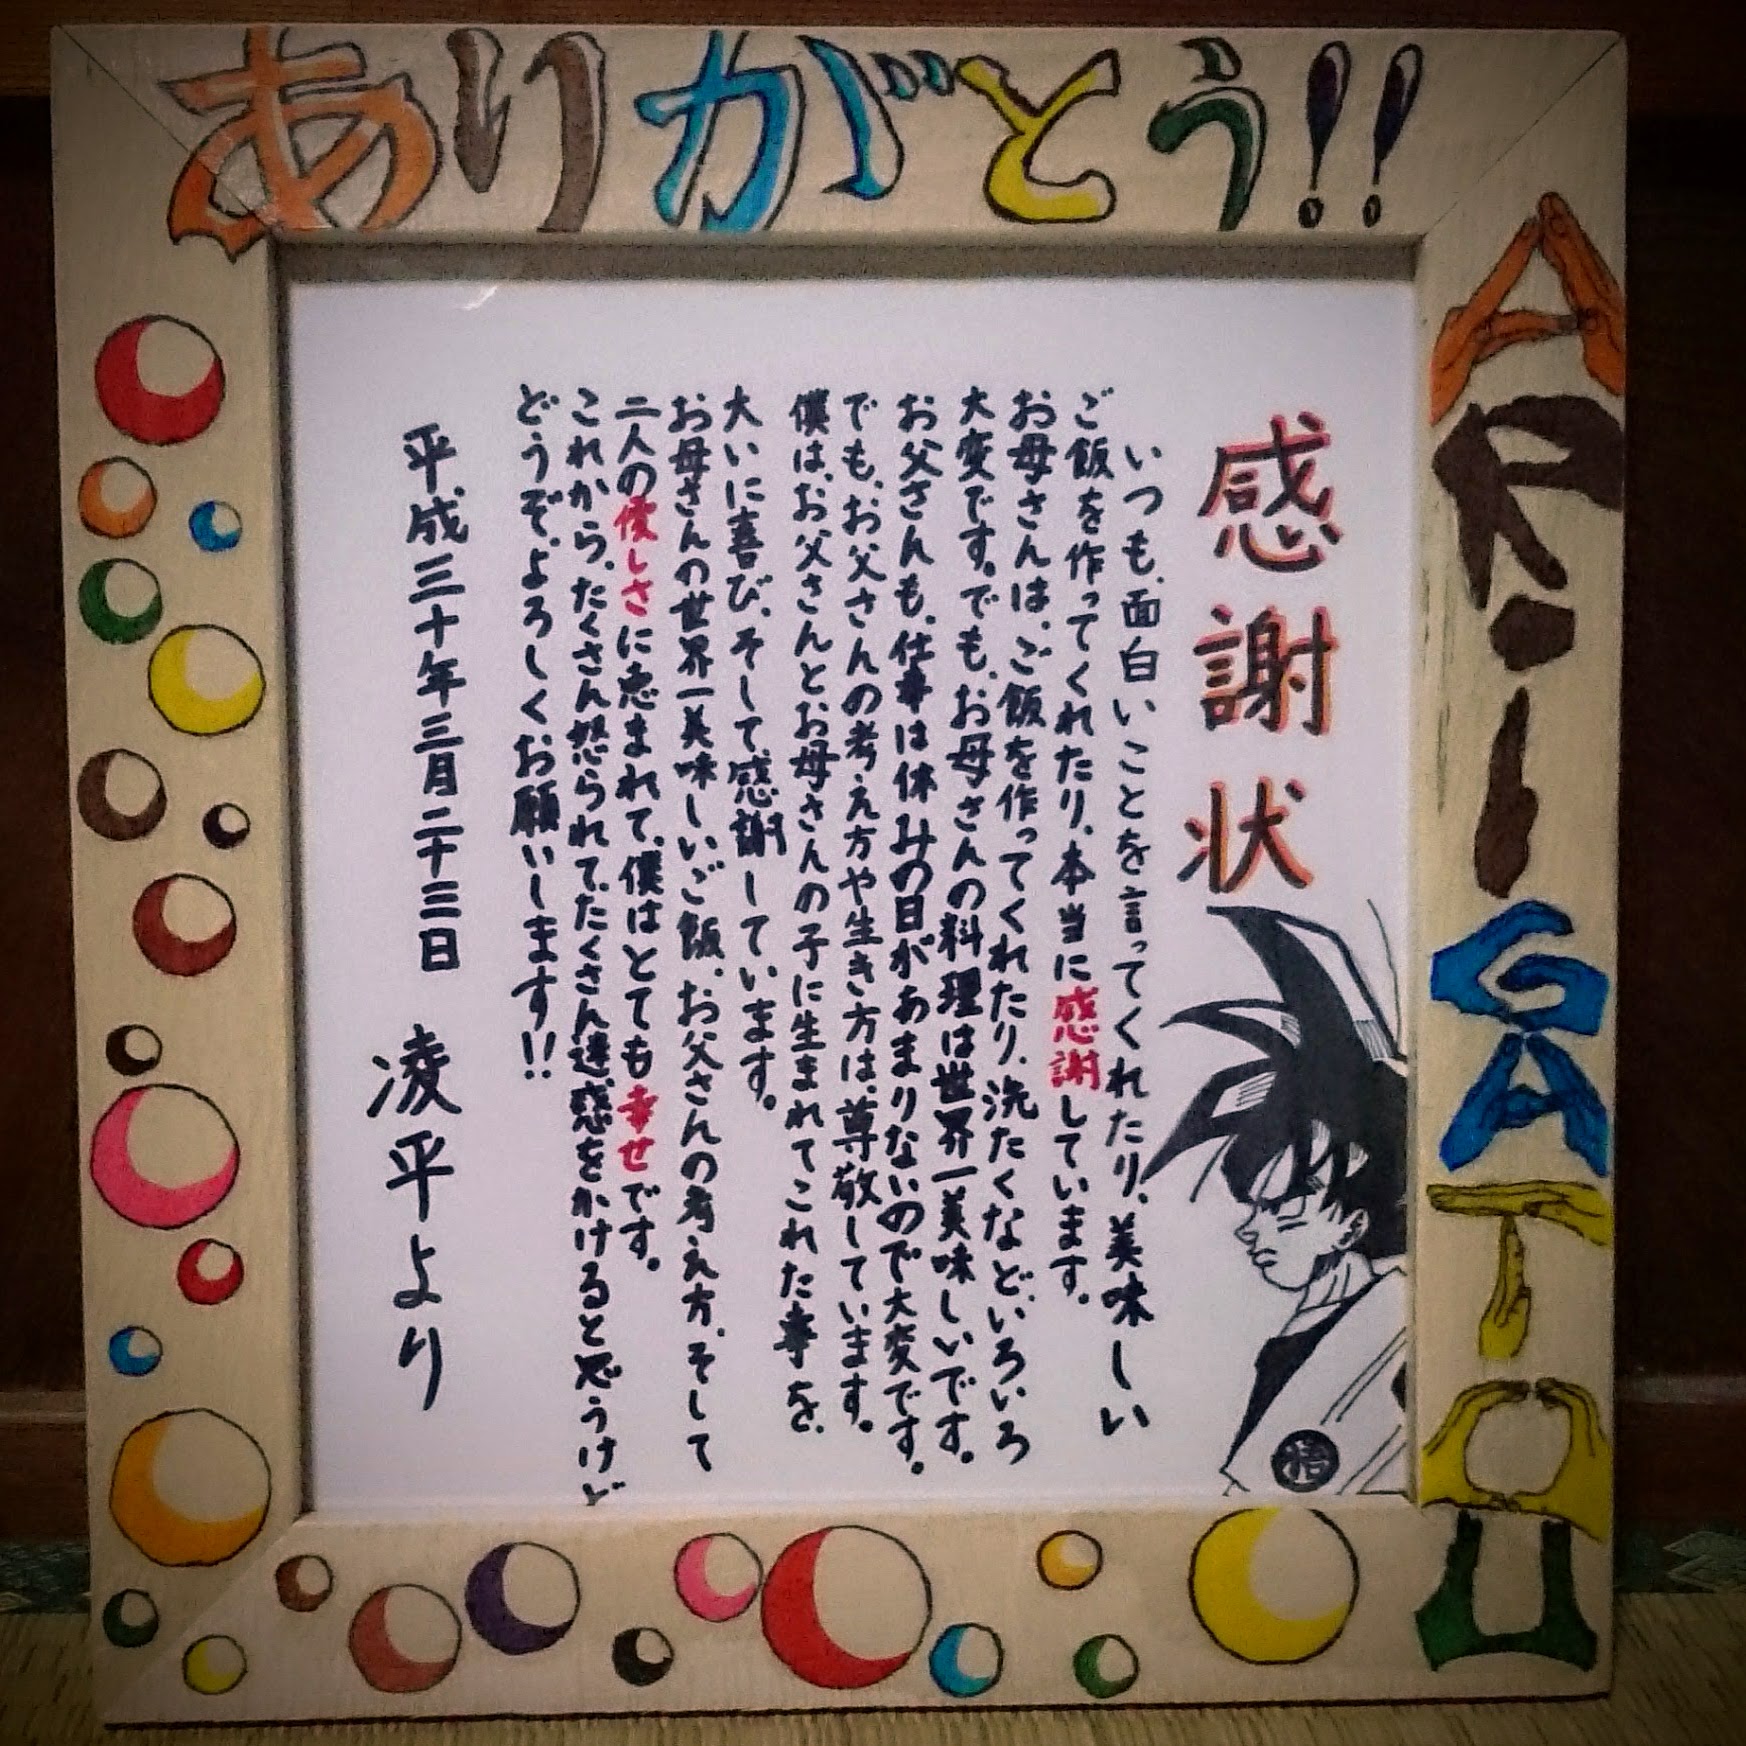 ありがとう!!
ARIGATOU
感謝状
いつも、面白いことを言ってくれたり、美味しい
ご飯を作ってくれたり、本当に感謝しています。
お母さんは、ご飯を作ってくれたり、洗たくなど、いろいろ
大変です。でも、お母さんの料理は世界一美味しいです。
お父さんも、仕事は休みの日があまりないので大変です。
でも、お父さんの考え方や生き方は、尊敬しています。
僕は、お父さんとお母さんの子に生まれてこれた事を、
大いに喜び、そして感謝しています。
お母さんの世界一美味しいご飯、お父さんの考え方、そして
二人の優しさに恵まれて、僕はとても幸せです。
これから、たくさん怒られて、たくさん迷惑をかけると思うけど
どうぞ、よろしくお願いします!!
平成三十年三月二十三日 凌平より
悟